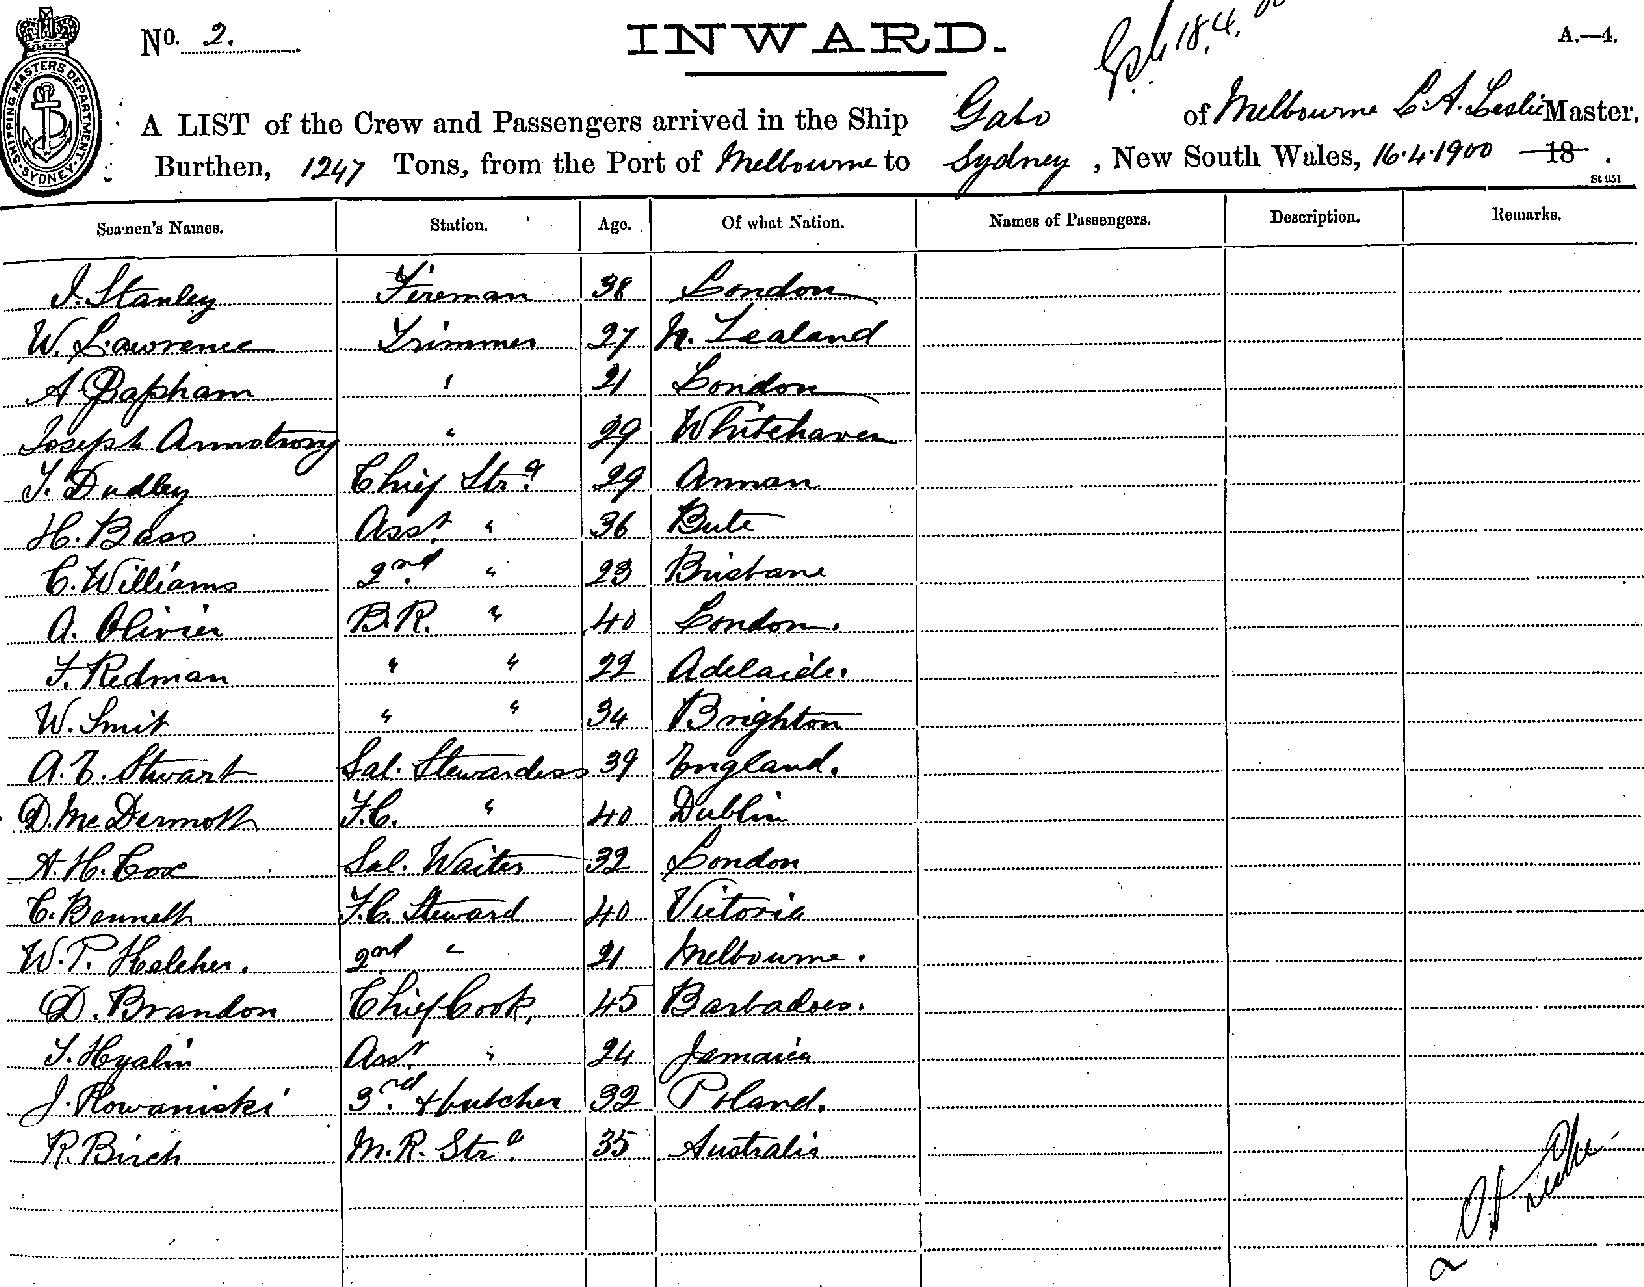 No. 2.
INWARD.
18.4.00
A.—4.
SHIPPING MASTERS DEPARTMENT SYDNEY
A LIST of the Crew and Passengers arrived in the Ship Gabo of Melbourne L. A. Leslie Master,
Burthen, 1247 Tons, from the Port of Melbourne to Sydney, New South Wales, 16.4.1900 18 .
Seamen's Names. Station. Age. Of what Nation. Names of Passengers. Description. Remarks.
J. Stanley Fireman 38 London
W. Lawrence Trimmer 27 N. Zealand
A. Papham " 21 London
Joseph Armstrong " 29 Whitehaven
T. Dudley Chief Strd. 29 Annan
H. Bass Asst. " 36 Bute
C. Williams 2nd. " 23 Brisbane
A. Olivier B.R. " 40 London.
F. Redman " " 22 Adelaide.
W. Smit " " 34 Brighton
A. E. Stewart Sal. Stewardess 39 England.
D. McDermott F.C. " 40 Dublin
A. H. Cox Sal. Waiter 32 London
C. Bennett F.C. Steward 40 Victoria
W. P. Halcher. 2nd " 21 Melbourne.
D. Brandon Chief Cook, 45 Barbadoes.
T. Hyalin Asst. " 24 Jamaica
J. Rowaniski 3rd. & butcher 32 Poland.
R. Birch M.R. Strd. 35 Australia